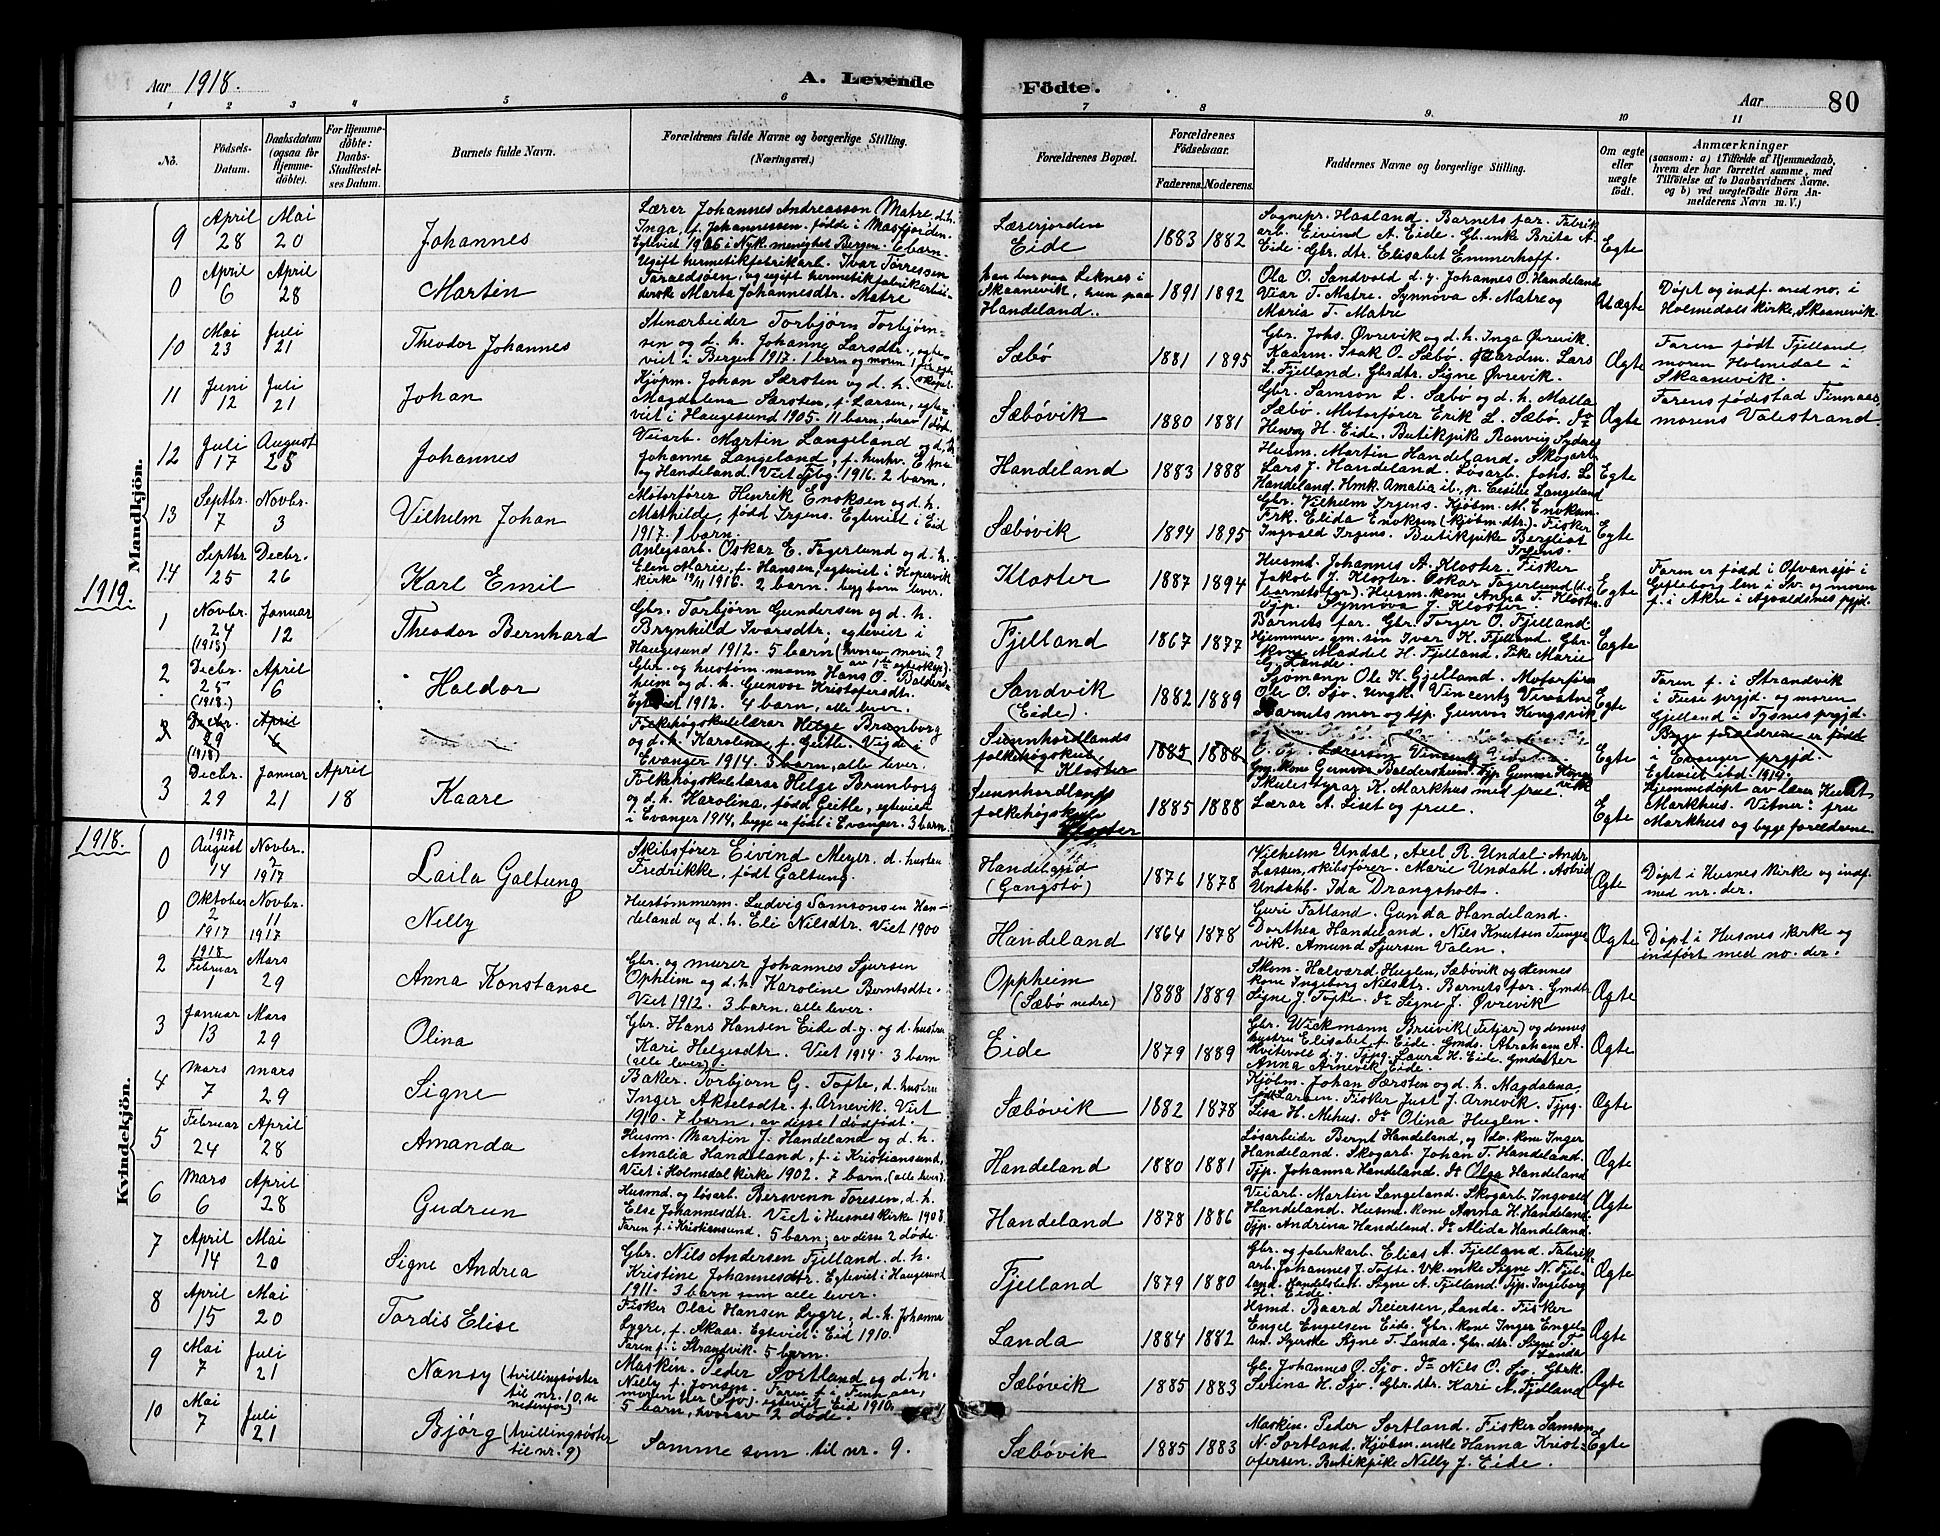 Aar 1918.
A. Levende
Födte.
Aar
80
1 2 3 4 5 6
7 8 9. 10 11
No.
Födsels-Datum.
Daabsdatum (ogsaa for Hjemmedöbte).
For Hjemmedöbte: Daabs-Stadfæstelses Datum.
Barnets fulde Navn.
Forældrenes fulde Navne og borgerlige Stilling. (Næringsvei.)
Forældrenes Bopæl.
Forældrenes Födselsaar.
Faderens. Moderens.
Faddernes Navne og borgerlige Stilling.
Om ægte eller uægte födt.
Anmærkninger
(saasom: a) i Tilfælde af Hjemmedaab, hvem der har forrettet samme, med Tilföielse af to Daabsvidners Navne. og b) ved uægtefödte Börn Anmelderens Navn m. V.)
Mandkjön.
9 April 28 Mai 20 Johannes
Lærar Johannes Andreasson Matre, d. h.
Inga, f. Johannessen, fødde i Masfjorden.
Egteviet 1906 i Nyk. menighet Bergen. 6 barn.
Lærerjorden Eide 1883 1882
Sognepr. Hasland. Barnets far. Fabrik
arb. Eivind A. Eide. Gb. enke Brita A.
Eide. Gbr. dtr. Elisabet Emmerhoff.
Egte
0 April 6 April 28 Martin
Ugift hermetikfabrikarb. Ivar Torressen
Taraldsøen, og ugift hermetikfabrikarbei-
derske Marta Johannesdtr. Matre
han bor paa Leknes i
Skaanevik, hun paa
Handeland.
1891 1892
Ola O. Sandvold d. y. Johannes O. Handeland
Viar T. Matre. Synnøva A. Matre og
Maria T. Matre
Uægte
Døpt og indf. med no. i
Holmedals kirke, Skaanevik.
10 Mai 23 Juli 21 Theodor Johannes
Stenarbeider Torbjørn Torbjørn-
sen og d. h. Johanne Larsdtr., egte-
viet i Bergen 1917. 1 barn og moren 1 før egte
skapet
Sæbö 1881 1895
Gbr. Johs. Øvrevik og d. h. Inga Øvrevik.
Kaarm. Isak O. Sæbö. Gaardm. Lars
L. Fjelland. Gbrdtr. Signe Øvrevik.
Ægte
Faren født Fjelland,
moren Holmedal i
Skaanevik.
11 Juni 12 Juli 21 Johan
Kjøpm. Johan Særsten og d. h.
Magdalena Særsten, f. Larsen, egte-
viet i Haugesund 1905. 11 barn, derav 1 død.
Sæbövik 1880 1881
Gbr. Samson L. Sæbö og d. h. Malla
Sæbö. Motorfører Erik L. Sæbö. Do
Henry H. Eide. Butikpike Ranvig Sydnes
Ægte
Farens fødestad Finnaas
morens Valestrand.
12 Juli 17 August 25 Johannes
Veiarb. Martin Langeland og d. h.
Johanna Langeland, f.
og Handeland. Viet 1916. 2 barn.
Handeland 1883 1888
Husm. Martin Handeland. Skogarb.
Lars J. Handeland. Løsarb. Johs. L
Handeland. Hmk. Amalia ib., p. Cecilie Langeland
Egte
13 Septbr. 7 Novbr. 3 Vilhelm Johan
Motorfører Henrik Enoksen og d. h.
Mathilde, født Irgens. Egteviet i Eid
1917. 1 barn.
Sæbövik 1894 1895
Gbr. Vilhelm Irgens. Kjøbm. M. Enoksen.
Frk. Elida Enoksen (kjøbm. dtr.). Fisker
Ingvald Irgens. Butikpike Bergliot
Irgens.
Egte
14 Septbr 25 Decbr. 26 Karl Emil
Anlegsarb. Oskar E. Fagerlund og d. h.
Elin Marie, f. Hansen, egteviet i Kopervik
kirke 19/11 1916. 2 barn. begg barn lever.
Kloster 1887 1894
Husmd. Johannes A. Kloster. Fisker
Jakob J. Kloster. Oskar Fagerlund (d. e.
barnets far). Husm. kone Anna T. Kloster
Tjp. Synnøva J. Kloster.
Egte
Faren er født i Ofvansjø i
Gefleborg len i Sv. og moren
f. i Akre i Agvaldsnes prgjd.
1919.
1 Novbr. 24 (1918) Januar 12 Theodor Bernhard
Gbr. Torbjørn Gundersen og d. h.
Brynhild Ivarsdtr., egteviet i
Haugesund 1912. 5 barn (hvorav moren 2
av 1ste egteskap).
Fjelland 1867 1877
Barnets far. Gbr. Torger O. Fjelland
Hjemmev. gm. søn Ivar K. Fjelland. Gbr.
kone Maddel H. Fjelland. Pike Marie
G. Lande.
Egte
2 Decbr. 25 (1918.) April 6 Haldor
Gbr. og hustøm. mann Hans O. Balders-
heim og d. h. Gunvor Kristofersdtr.
Egteviet 1912. 4 barn, alle lever.
Sandvik (Eide). 1882 1889
Sjømann Ole K. Gjelland. Motorføra
Ole O. Sjo. Ungk. Vincentz Virvatne
Barnets mor og tjp. Gunvor Kongsvik
Egte
Faren f. i Strandvik
i Fuse prgjd. og moren
Gjelland i Tysnes prgjd.
3 Decbr. 29 (1918) April 6
Folkehøgskulelærar Helge Brunborg
og d. h. Karoline f. Geitle. Vigde i
Evanger 1914. 3 barn, alle lever.
Sunnhordlands
folkehögskule
Kloster
1885 1888
Gm. kone Gunvor Baldersheim. Tjp Gunvor Kongsvik
Egte
Begge foreldrene er född
i Evanger prgjd.
Egteviet ibd. 1914.
3 Decbr. 29 Januar 21 April 18 Kaare
Folkhøgskulelærar Helge Brunborg
og d. h. Karolina, født Geitle, egteviet
i Evanger 1914, begge er født i Evanger. 3 barn.
Sunnhordlands
folkehögskule
Kloster
1885 1888
Skulestyrar K. Markhus med frue.
Lærar A. Liset og frue.
Egte
Hjemmedøpt av lærer Knut
Markhus. Vitner: fru
Markhus og begge foreldrene.
1918.
Kvindekjön.
0 1917 August 14 Novbr. 2 1917 Laila Galtung
Skibsfører Eivind Meyer, d. hustru
Fredrikke, født Galtung.
Handeland (Gangstø) 1876 1878
Vilhelm Undal, Axel R. Undal. Andr
Lassen, skibsfører. Marie Undahl. Astrid
Undahl. Ida Drangsholt.
Ægte
Døpt i Husnes kirke og indf.
med nr. der.
0 Oktober 2 1917 Novbr. 11 1917 Nelly
Hustømmerm. Ludvig Samsonsen Han-
deland og d. h. Eli Nilsdtr. Viet 1900
Handeland 1864 1878
Guri Tatland. Gunda Handeland.
Dorthea Handeland. Nils Knutsen Tunges
vik. Amund Sjursen Valen.
Ægte
Døpt i Husnes kirke og
indført med no. der.
2 1918 Februar 1 Mars 29 Anna Konstanse
Gbr. og murer Johannes Sjursen
Opheim og d. h. Karoline Berntsdtr.
Viet 1912. 3 barn, alle lever.
Oppheim (Sæbö nedre) 1888 1889
Skom. Halvard Huglen, Sæbövik og dennes
kone Ingeborg Nilsdtr. Barnets far. Gmdt
Signe J. Tofte. Do Signe J. Øvrevik
Ægte
3 Januar 13 Mars 29 Olina
Gbr. Hans Hansen Eide d. y. og d. hustru
Kari Helgesdtr. Viet 1914. 3 barn
(alle lever).
Eide 1879 1889
Gbr. Wickmann Breivik (Fitjar) og dennes
hustru Elisabet f. Eide. Gmds. Abraham A.
Kvitevoll d. y. Tjpg. Laura H. Eide. Gmdatter
Anna Arnevik Eide.
Ægte
4 Mars 7 mars 29 Signe
Baker. Torbjorn G. Tofte, d. hustru
Inger Akselsdtr. f. Arnevik. Viet
1910. 7 barn, av disse 1 dødfødt.
Sæbövik 1882 1878
Kjöbm. Johan Særsten og d. h. Magdalena
født Larsen. Fisker Just J. Arnevik. Tjpg.
Lisa H. Mehus. Do Olina Huglen.
Ægte
5 Februar 24 April 28 Amanda
Husm. Martin J. Handeland og d. h.
Amalia Handeland, f. i Kristiansund,
Viet i Holmedal kirke 1902. 7 barn, (alle lever).
Handeland 1880 1881
Løsarbeidr Bernt Handeland, og do. kone Inger
Handeland. Skogarb. Johan T. Handeland.
Tjp. Johanna Handeland. Do Olga Handeland
Ægte
6 Mars 6 April 28 Gudrun
Husmd. og løsarb. Bersvenn Toresen, d. h.
Else Johannesdtr. Viet i Husnes kirke 1908.
Faren f. i Kristiansund. 5 barn; av disse 2 døde.
Handeland 1878 1886
Veiarb. Martin Langeland. Skogarb. Ingvald
Handeland. Husmd. kone Anna H. Handeland.
Tjp. Andrina Handeland. Do Alida Handeland.
Ægte
7 April 14 Mai 20 Signe Andrea
Gbr. Nils Andersen Fjelland, d. h.
Kristine Johannesdtr. Egteviet i Haugesund
1911. 3 barn som alle lever.
Fjelland 1879 1880
Gbr. og fabrekarb. Elias A. Fjelland. Fabrik
arb. Johannes J. Tofte. Vk. enke Signe N. Fjel-
land. Handelsbest. Signe A. Fjelland. Tjp. Ingeborg
H. Eide.
Ægte
8 April 15 Mai 20 Tordis Elise
Fisker Olai Hansen Lygre, d. h. Johanna
Lygre, f. Skaar. Egteviet i Eid 1910.
Faren f. i Strandvik. 5 barn.
Landa 1884 1882
Hsmd. Baard Reiersen, Landa. Fisker
Engel Engelsen Eide. Gbr. kone Inger Engel-
sen. Syerske Signe T. Landa. Gbr. dtr. Signe T.
Landa
Ægte
9 Mai 7 Juli 21 Nansy (tvillingsøster
til nr. 10, se
nedenfor)
Maskin. Peder Sortland og d. h.
Nelly f. Jonsen. Faren f. i Finnaas,
moren her (Sjo). egteviet Eid 1910.
5 barn, hvorav 2 døde.
Sæbövik 1885 1883
Gb. Johannes O. Sjo. Do Nils O. Sjo. Gbrk.
Serina H. Sjo. Gbr. dtr. Kari A. Fjelland
Ægte
10 Mai 7 Juli 21 Bjørg (tvillingsøster
til nr. 9)
Samme som til nr. 9.
Sæbövik 1885 1883
Maskin. Peder Sortland. Fisker Samson
N. Sortland. Kjöbm. enke Hanna Krist-
ofersen. Butikpike Nelly J. Eide.
Egte